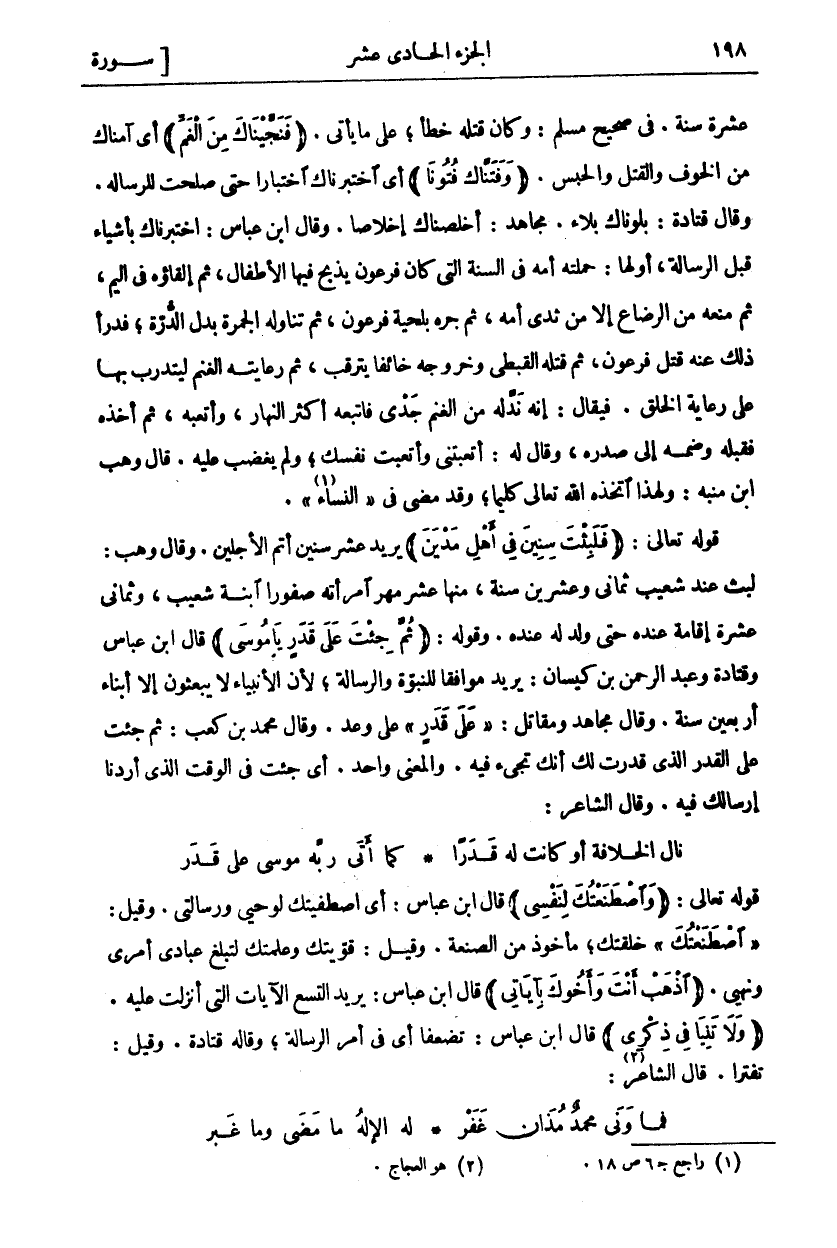 ١٩٨ الجزء الحادى عشر [ سورة
عشرة سنة . فى صحيح مسلم : وكان قتله خطأ ؛ على ما يأتى . ﴿ فَنَجَّيْنَاكَ مِنَ الْغَمِّ ﴾ أى آمناك
من الخوف والقتل والحبس . ﴿ وَفَتَنَّاكَ فُتُونًا ﴾ أى آختبرناك آختبارا حتى صلحت للرساله .
وقال قتادة : بلوناك بلاء . مجاهد : أخلصناك إخلاصا . وقال ابن عباس : اختبرناك بأشياء
قبل الرسالة ، أولها : حملته أمه فى السنة التى كان فرعون يذبح فيها الأطفال ، ثم إلقاؤه فى اليم ،
ثم منعه من الرضاع إلا من ثدى أمه ، ثم جره بلحية فرعون ، ثم تناوله الجمرة بدل الدُّرّة ؛ فدرأ
ذلك عنه قتل فرعون ، ثم قتله القبطى وخروجه خائفا يترقب ، ثم رعايته الغنم ليتدرب بها
على رعاية الخلق . فيقال : إنه نَدَّله من الغنم جَدْى فاتبعه أكثر النهار ، وأتعبه ، ثم أخذه
فقبله وضمه إلى صدره ، وقال له : أتعبتنى وأتعبت نفسك ؛ ولم يغضب عليه . قال وهب
ابن منبه : ولهذا آتخذه الله تعالى كليما ؛ وقد مضى فى « النساء (١) » .
قوله تعالى : ﴿ فَلَبِثْتَ سِنِينَ فِي أَهْلِ مَدْيَنَ ﴾ يريد عشر سنين أتم الأجلين . وقال وهب :
لبث عند شعيب ثمانى وعشرين سنة ، منها عشر مهر آمرأته صفورا آبنة شعيب ، وثمانى
عشرة إقامة عنده حتى ولد له عنده . وقوله : ﴿ ثُمَّ جِئْتَ عَلَى قَدَرٍ يَامُوسَى ﴾ قال ابن عباس
وقتادة وعبد الرحمن بن كيسان : يريد موافقا للنبوّة والرسالة ؛ لأن الأنبياء لا يبعثون إلا أبناء
أربعين سنة . وقال مجاهد ومقاتل : « عَلَى قَدَرٍ » على وعد . وقال محمد بن كعب : ثم جئت
على القدر الذى قدرت لك أنك تجىء فيه . والمعنى واحد . أى جئت فى الوقت الذى أردنا
إرسالك فيه . وقال الشاعر :
نال الخلافة أو كانت له قَدَرًا * كما أَتَى ربَّه موسى على قَدَر
قوله تعالى : ﴿ وَآصْطَنَعْتُكَ لِنَفْسِى ﴾ قال ابن عباس : أى اصطفيتك لوحيى ورسالتى . وقيل :
« آصْطَنَعْتُكَ » خلقتك ؛ مأخوذ من الصنعة . وقيل : قوّيتك وعلمتك لتبلغ عبادى أمرى
ونهيى . ﴿ آذْهَبْ أَنْتَ وَأَخُوكَ بِآيَاتِي ﴾ قال ابن عباس : يريد التسع الآيات التى أنزلت عليه .
﴿ وَلَا تَنِيَا فِى ذِكْرِى ﴾ قال ابن عباس : تضعفا أى فى أمر الرسالة ؛ وقاله قتادة . وقيل :
تفترا . قال الشاعر (٢) :
فما وَنَى محمدٌ مُذَان غَفَرْ * له الإلهُ ما مَضَى وما غَبر
(١) راجع جـ ٦ ص ١٨ . (٢) هو العجاج .